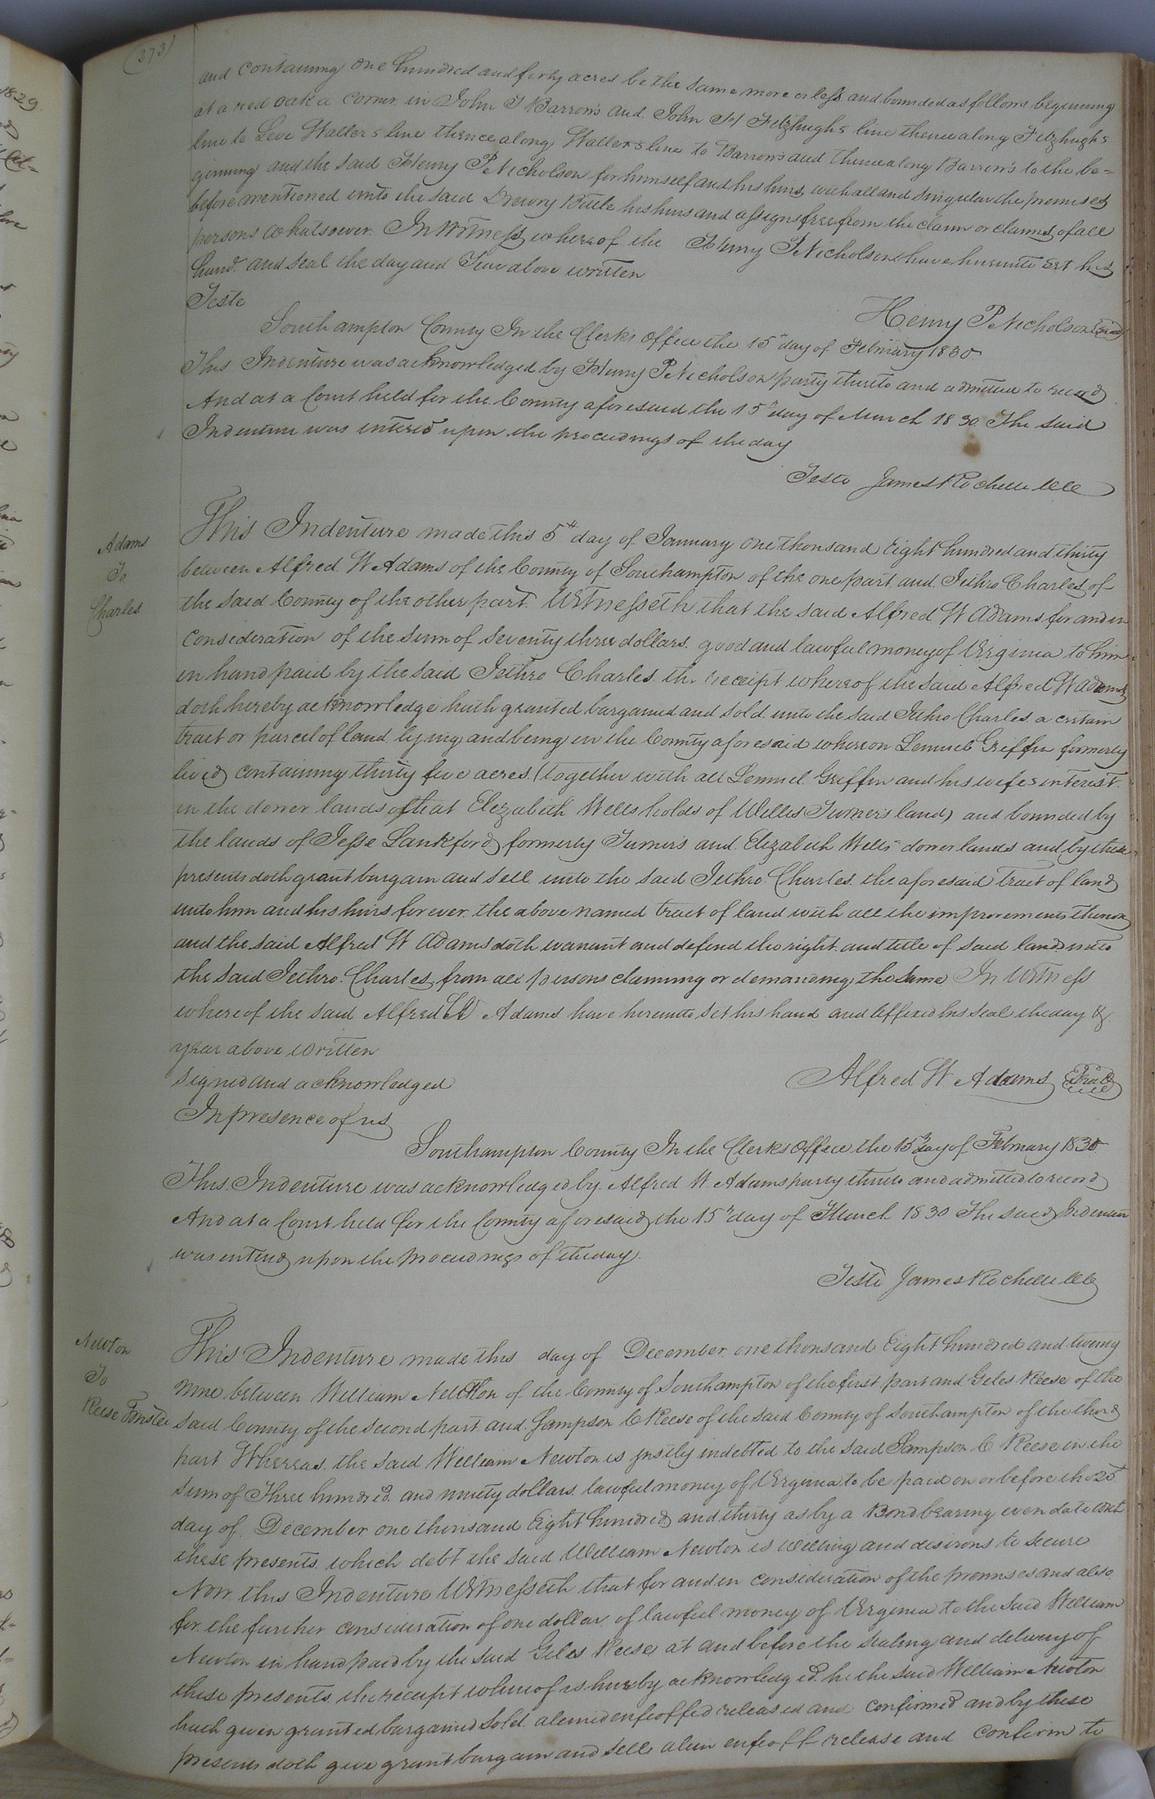 (373)
and containing one hundred and forty acres be the same more or less and bounded as follows beginning
at a red oak a corner in John T Barrow's and John H Fitzhugh's line thence along Fitzhugh's
line to Levi Waller's line thence along Waller's line to Barrow's and thence along Barrow's to the be=
ginning and the said Henry P Nicholson for himself and his heirs, with all and singular the premises
before mentioned unto the said Drewry Bittle his heirs and assigns free from the claim or claims of all
persons whatsoever. In Witness whereof the Henry P Nicholson have hereunto set his
hand and seal the day and Year above written
Teste
Henry P Nicholson {Seal}
Southampton County In the Clerk's Office the 15th day of February 1830
This Indenture was acknowledged by Henry P Nicholson party thereto and admitted to record
And at a Court held for the County aforesaid the 15th day of March 1830 The said
Indenture was entered upon the proceedings of the day
Teste James Rochelle Clk
Adams
To
Charles
This Indenture made this 5th day of January one thousand Eight hundred and thirty
between Alfred W Adams of the County of Southampton of the one part and Jethro Charles of
the said County of the other part. Witnesseth that the said Alfred W Adams for and in
consideration of the sum of seventy three dollars. good and lawful money of Virginia to him
in hand paid by the said Jethro Charles the receipt whereof the said Alfred W Adams
doth hereby acknowledge hath granted bargained and sold unto the said Jethro Charles a certain
tract or parcel of land lying and being in the County aforesaid whereon Lemuel Griffin formerly
lived containing thirty five acres (together with all Lemuel Griffin and his wifes interest
in the dower lands of that Elizabeth Wells holds of Willis Turner's land) and bounded by
the lands of Jesse Lankford formerly Turner's and Elizabeth Wells dower lands and by these
presents doth grant bargain and sell unto the said Jethro Charles the aforesaid tract of land
unto him and his heirs forever the above named tract of land with all the improvements thereon
and the said Alfred W Adams doth warrant and defend the right and title of said land unto
the said Jethro Charles from all persons claiming or demanding the same In Witness
whereof the said Alfred W Adams have hereunto set his hand and affixed his seal the day &
year above written
Signed and acknowledged
Alfred W Adams {Seal}
In presence of us
Southampton County In the Clerks Office the 15th day of February 1830
This Indenture was acknowledged by Alfred W Adams party thereto and admitted to record
And at a Court held for the County aforesaid the 15th day of March 1830 The said Indenture
was entered upon the proceedings of the day.
Teste James Rochelle Clk
Newton
To
Reese Trustee
This Indenture made this day of December one thousand Eight hundred and twenty
nine between William Newton of the County of Southampton of the first part and Giles Reese of the
said County of the second part and Sampson C Reese of the said County of Southampton of the third
part Whereas the said William Newton is justly indebted to the said Sampson C Reese in the
sum of Three hundred and ninety dollars lawful money of Virginia to be paid on or before the 25th
day of December one thousand Eight hundred and thirty as by a Bond bearing even date with
these presents which debt the said William Newton is willing and desirous to secure
Now this Indenture Witnesseth that for and in consideration of the premises and also
for the further consideration of one dollar of lawful money of Virginia to the said William
Newton in hand paid by the said Giles Reese at and before the sealing and delivery of
these presents the receipt whereof is hereby acknowledged he the said William Newton
hath given granted bargained sold aliened enfeoffed released and confirmed and by these
presents doth give grant bargain and sell alien enfeoff release and confirm to